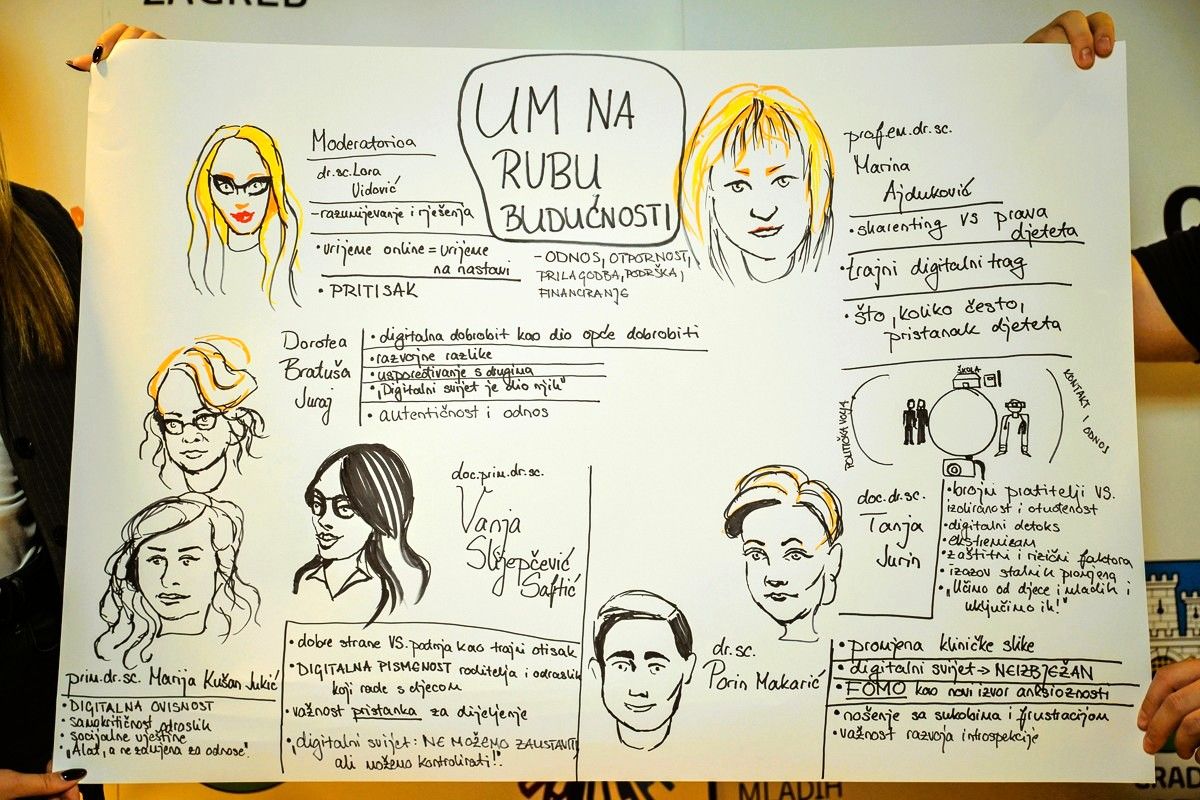 ZAGREB
UM NA
RUBU
BUDUĆNOSTI
- ODNOS, OTPORNOST,
PRILAGODBA, PODRŠKA,
FINANCIRANJE
Moderatorica
dr.sc. Lora
Vidović
- razumijevanje i rješenja
• vrijeme online = vrijeme
na nastavi
• PRITISAK
prof.em.dr.sc.
Marina
Ajduković
• sharenting vs prava
djeteta
• trajni digitalni trag
• što, koliko često,
pristanak djeteta
Dorotea
Bratuša
Juraj
• digitalna dobrobit kao dio opće dobrobiti
• razvojne razlike
• uspoređivanje s drugima
• "Digitalni svijet je dio njih"
• autentičnost i odnos
ŠKOLA
POLITIČKA VOLJA
KONTAKT I ODNOS
doc.prim.dr.sc.
Vanja
Slijepčević
Saftić
• dobre strane VS. patnja kao trajni otisak
• DIGITALNA PISMENOST roditelja i odraslih
koji rade s djecom
• važnost pristanka za dijeljenje
• "digitalni svijet: NE MOŽEMO ZAUSTAVITI
ali možemo kontrolirati!".
doc.dr.sc.
Tanja
Jurin
• brojni pratitelji VS.
izoliranost i otuđenost
• digitalni detoks
• ekstremizam
• zaštitni i rizični faktora
• izazov stalnih promjena
• "Učimo od djece i mladih i
uključimo ih!"
prim.dr.sc. Marija Kušan Jukić
• DIGITALNA OVISNOST
• samokritičnost odraslih
• socijalne vještine
• "Alat, a ne zamjena za odnose".
dr.sc.
Porin Makarić
• promjena kliničke slike
• digitalni svijet → NEIZBJEŽAN
• FOMO kao novi izvor anksioznosti
• nošenje sa sukobima i frustracijom
• važnost razvoja introspekcije
MLADIH
GRAD